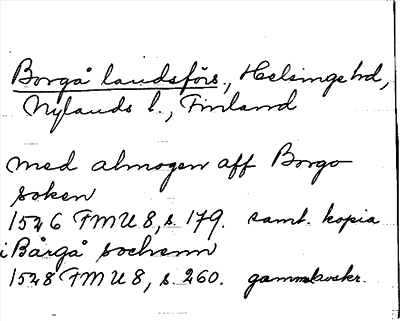 Borgå landsförs., Helsinge hd,
Nylands l., Finland
med almogen aff Borgo
soken
1526 FMU 8, s. 179. samt. kopia
i Bårgå sochenn
1528 FMU 8, s. 260.